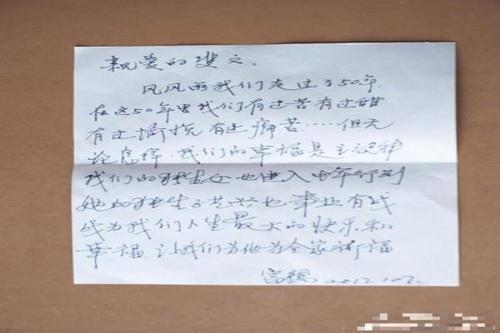 亲爱的建文、
风风雨我们走过了50年
在这50年里我们有过苦有过甜
有过愉快 有过痛苦……但无
论怎样,我们的幸福是主旋律
我们的 也进入中年行列
她的 事业有成
成为我们人生最大的快乐和
幸福 让我们为他为全家祈福
2017.10.7.